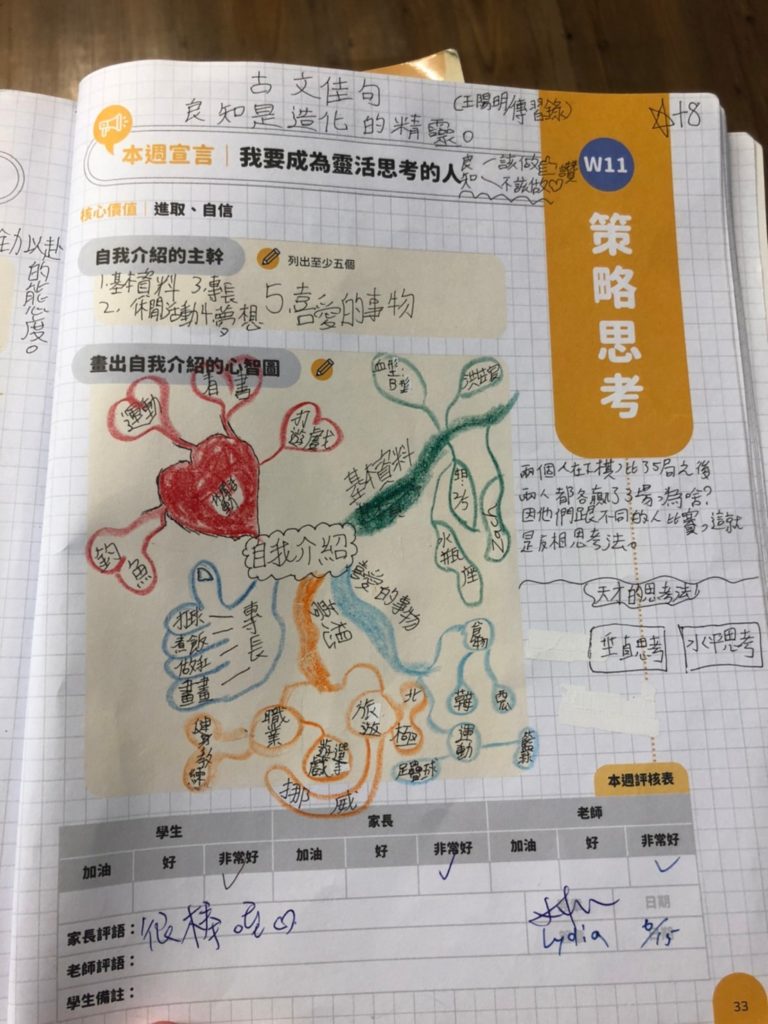 古文佳句
良知是造化的精靈。
(王陽明傳習錄)
☆+8
本週宣言｜我要成為靈活思考的人
良知
該做
讚
不該做♡
W11
策略思考
核心價值｜進取、自信
自我介紹的主幹
列出至少五個
1.基本資料 3.專長
2.休閒活動 4.夢想
5.喜愛的事物
畫出自我介紹的心智圖
自我介紹
運動
看書
打遊戲
釣魚
基本資料
血型:B型
水瓶座
Zach
專長
打球
煮飯
畫畫
夢想
職業
健身教練
旅遊
北極
挪威
喜愛的事物
食物
運動
籃球
足壘球
兩個人在下棋,比35局之後
兩人都各贏了3場,為啥?
因他們跟不同的人比賽,這就
是反相思考法。
天才的思考法
垂直思考
水平思考
全力以赴
的態度。
本週評核表
學生 家長 老師
加油 好 非常好 加油 好 非常好 加油 好 非常好
家長評語：很棒喔♡
Lydia
日期
6/15
老師評語：
學生備註：
33